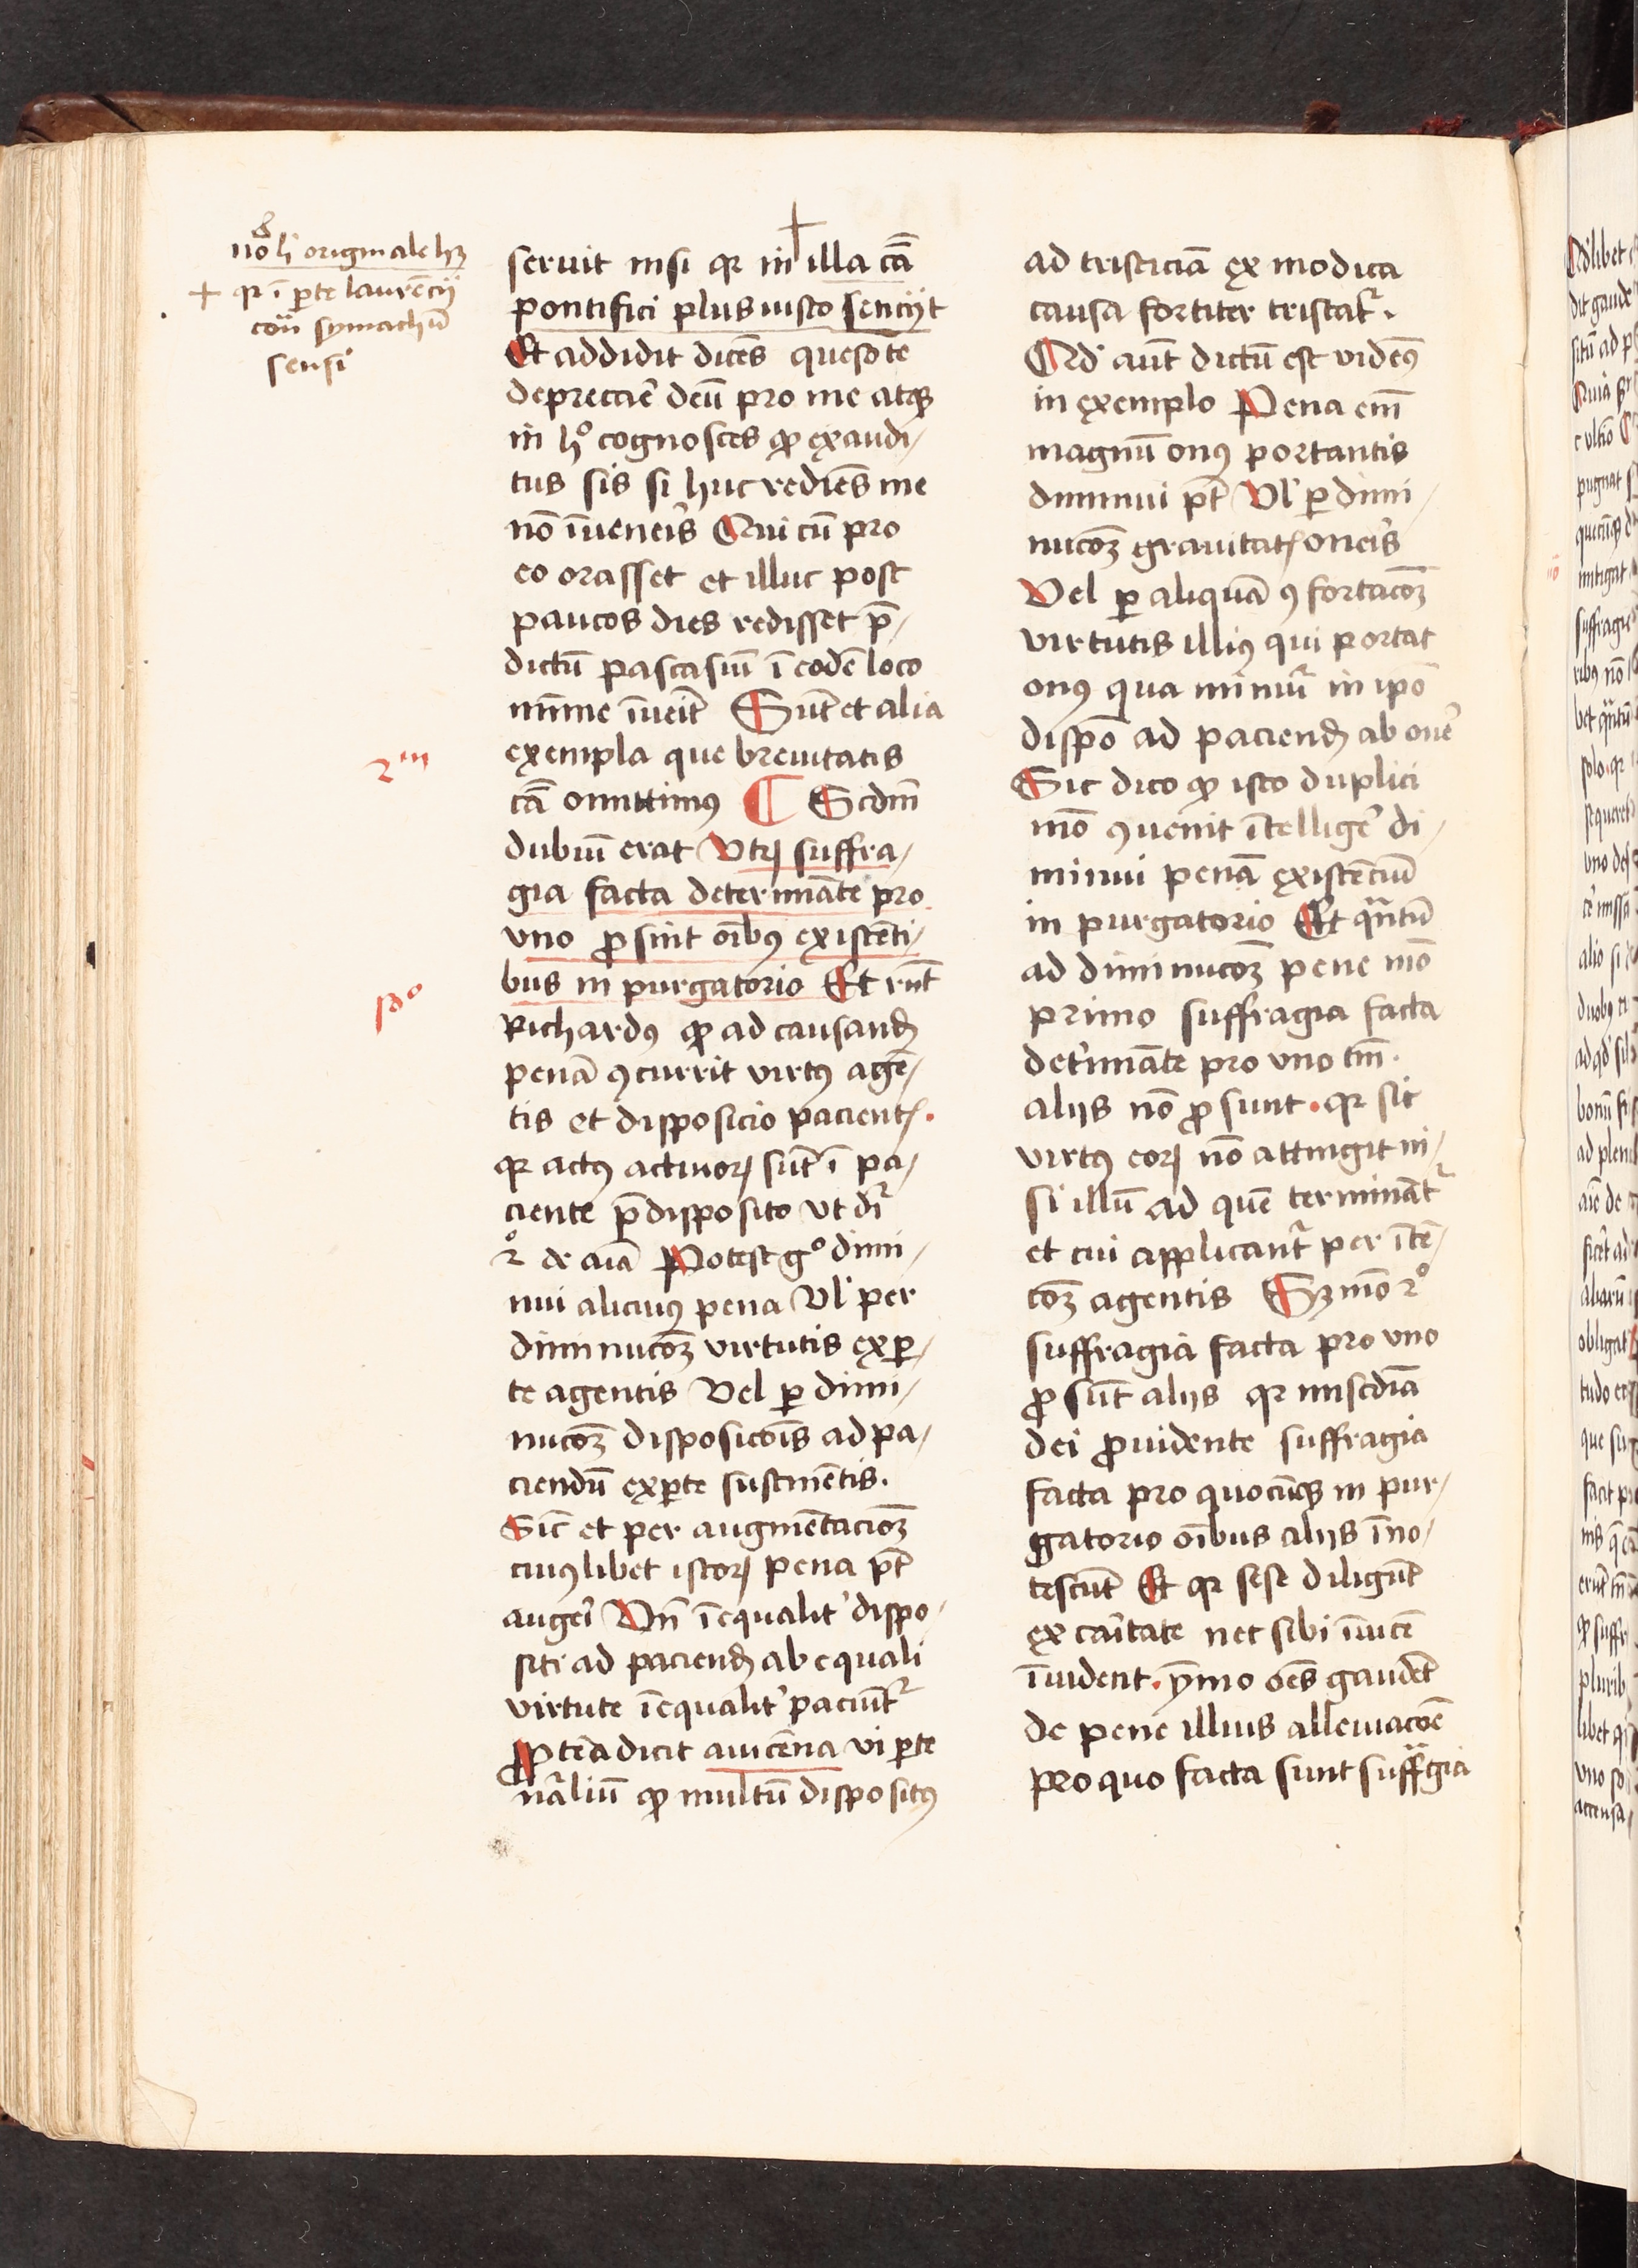 nō hͦ originale hꝫ
+ qꝛ ī ꝑte laurēcij
cōn symachū
sensi
seruit nisi qꝛ in illa cā̄
pontifici plus iusto senciit
Et addidit dicēs queso te
deprecaē deū pro me atqꝫ
in hͦ cognosces ꝙ exaudi/
tus sis si huc rediēs me
nō īueneis Qui cū pro
eo orasset et illuc post
paucos dies redisset p̄/
dictū pascasiū ī eodē loco
mīme īueit Sūt et alia
exempla que breuitatis
2m
cā omittimꝰ ¶ Scdm
dubiū erat Utꝝ suffra/
gia facta determiāte pro
uno ꝓsint oībꝰ existēti/
bus in purgatorio Et rn̄t
pͦ
Richardꝰ ꝙ ad causanđ
penā ꝯcurrit virtꝰ agē/
tis et disposicio pacientꝭ.
qꝛ actꝰ actiuoꝝ sūt ī pa/
ciente p̄disposito ut dr̄
2ͦ de aīa Potest gͦ dimi/
nui alicuiꝰ pena Ul' per
diminucōꝫ virtutis ex ꝑ/
te agentis Vel ꝑ dimi/
nucōꝫ disposicōis ad pa/
ciendū ex ꝑte sustinētis.
Sic et per augmētacioꝫ
cuiꝰlibet istoꝝ pena pt̄
augei Un̄ īequalit' dispo/
siti ad pacienđ ab equali
virtute īequalit' paciūtᷣ
Ꝓpterea dicit auicēna vi ꝑte
nāliū ꝙ multū dispositꝰ
ad tristiciā ex modica
causa fortiter tristatᷣ.
Qđ aūt dictū est videꝰ
in exemplo Pena em̄
magnū onꝰ portantis
diminui pt̄ Ul' ꝑ dimi/
nucōꝫ grauitatꝭ oneis
Vel ꝑ aliquā ꝯfortacōꝫ
virtutis illiꝰ qui portat
onꝰ qua minuiᷣ in ipō
dispō ad pacienđ ab oneꝰ
Sic dico ꝙ isto duplici
mō ꝯuenit ītellige' di/
minui penā existēciū
in purgatorio Et qᷓntū
ad diminucōꝫ pene mō
primo suffragia facta
det'miāte pro uno tm̄.
aliis nō ꝓsunt. qꝛ sic
virtꝰ eoꝝ nō attingit ni/
si illū ad quē terminātᷣ
et cui applicantᷣ per ītē/
cōꝫ agentis Sꝫ mō 2ͦ
suffragia facta pro uno
ꝓsūt aliis qꝛ miscdīa
dei ꝓuidente suffragia
facta pro quocūqꝫ in pur/
gatorio oībus aliis īno/
tescūt Et qꝛ sese diligūt
ex caītate nec sibi īuicē
īuident. ymo oēs gaudēt
de pene illius alleuiacōe
pro quo facta sunt suffᷓgia